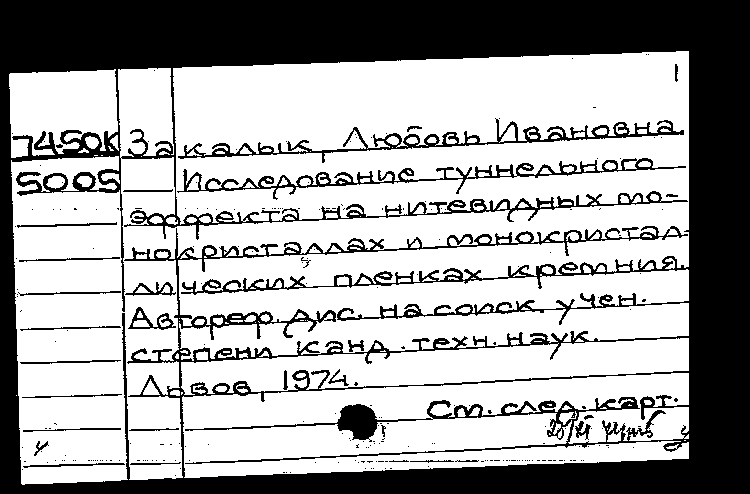 1
74-50К Закалык, Любовь Ивановна.
5005 Исследование туннельного
эффекта на нитевидных мо-
нокристаллах и монокристал-
лических пленках кремния.
Автореф. дис. на соиск. учен.
степени канд. техн. наук.
Львов, 1974.
См. след. карт.